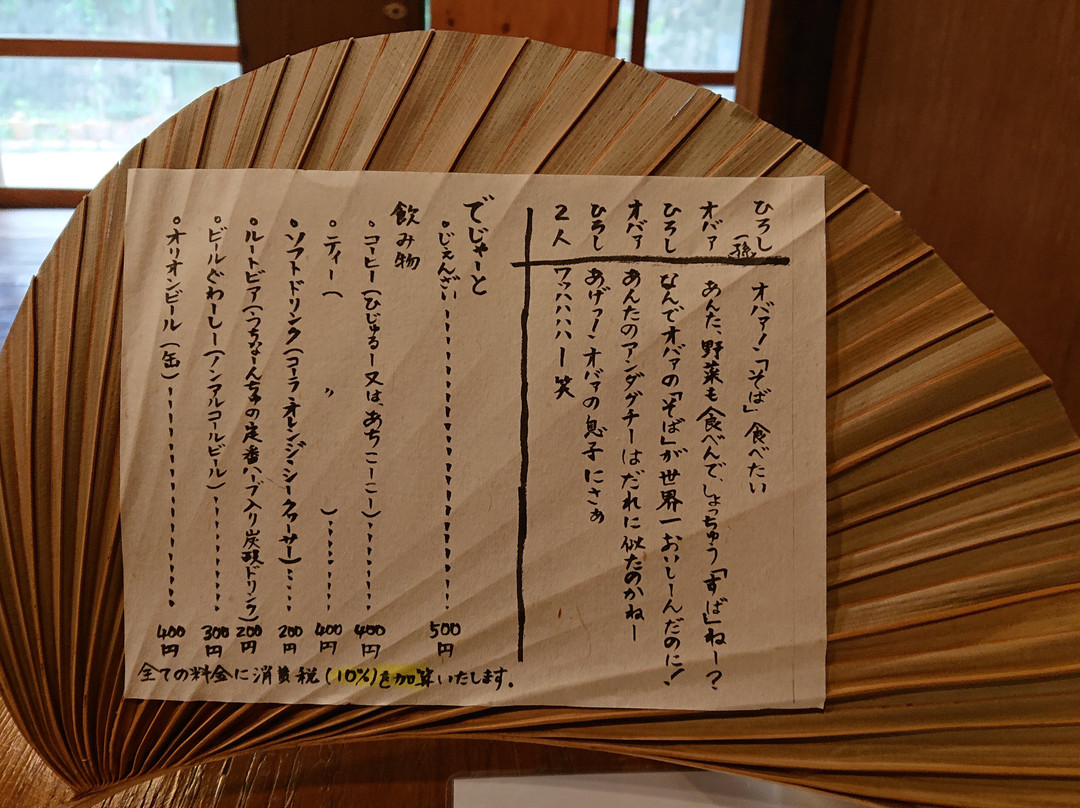 ひろし(孫) オバァ!「そば」食べたい
オバァ あんた、野菜も食べんで、しょっちゅう「すば」ねー?
ひろし なんでオバァの「そば」が世界一おいしーんだのに!
オバァ あんたのアンダグチーはだれに似たのかねー
ひろし あげっ!オバァの息子にさぁ
2人 ワッハハハハー笑
でじゃーと
・じぇんざい 500円
飲み物
・コーヒー(ひじゅるー又はあちこーこー) 400円
・ティー( 〃 ) 400円
・ソフトドリンク(コーラ オレンジ シークヮーサー) 200円
・ルートビア(うちなーんちゅの定番ハーブ入り炭酸ドリンク) 200円
・ビールぐゎーしー(ノンアルコールビール) 300円
・オリオンビール(缶) 400円
全ての料金に消費税(10%)を加算いたします。